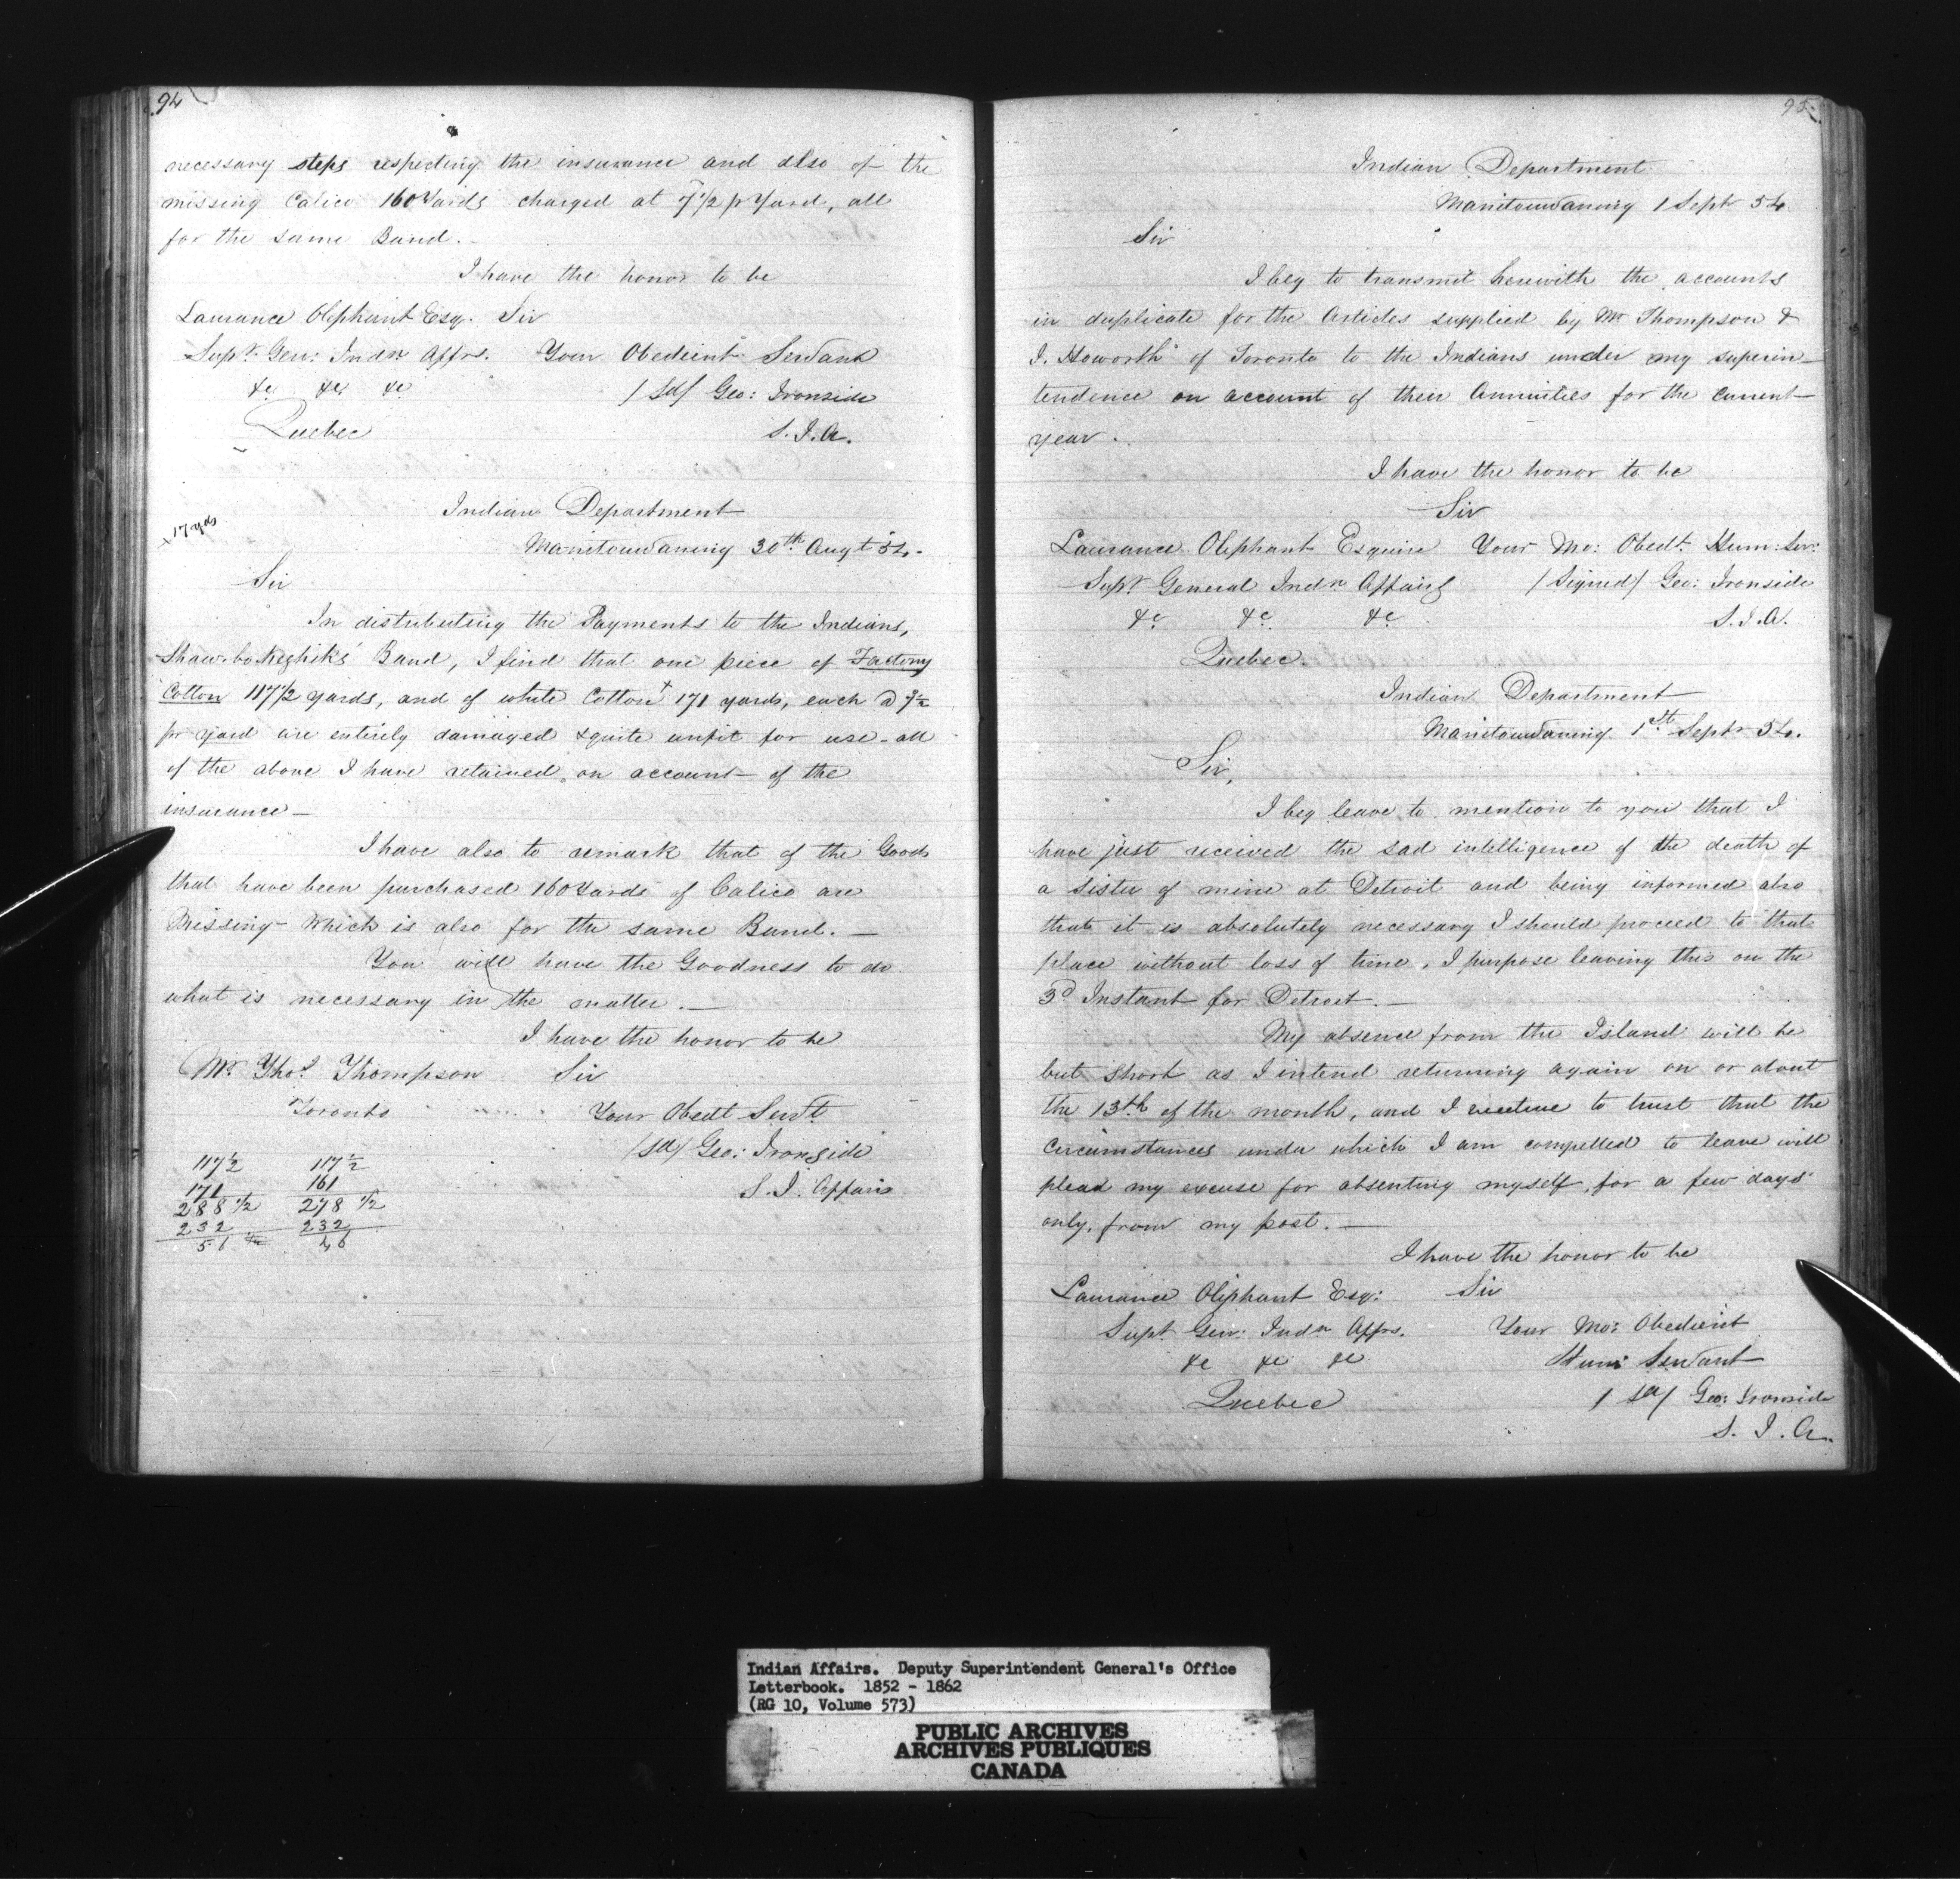 94
necessary steps respecting the insurance and also of the
missing Calico 160 Yards charged at 7 1/2 p Yard, all
for the same Band.
I have the honor to be
Laurance Oliphant Esq. Sir
Supt Gen: Indn Affrs. Your Obedient Servant
&c &c &c /Sd/ Geo: Ironside
Quebec S.I.A.
Indian Department
x 17 yds
Manitouwaning 30th Augt 54.
Sir
In distributing the Payments to the Indians,
Shaw-bo-Keghik's Band, I find that one piece of Factory
Cotton 117 1/2 yards, and of white Cotton x 171 yards, each @ 7 1/2
pr yard are entirely damaged & quite unfit for use - all
of the above I have retained, on account of the
insurance —
I have also to remark that of the Goods
that have been purchased 160 Yards of Calico are
Missing - Which is also for the same Band. —
You will have the Goodness to do
what is necessary in the matter. —
I have the honor to be
Mr Thos Thompson Sir
Toronto Your Obedt Servt
/Sd/ Geo: Ironside
S. I. Affairs
117 1/2 117 1/2
171 161
288 1/2 278 1/2
232 232
51 46
95
Indian Department
Manitouwaning 1 Sept 54
Sir
I beg to transmit herewith the accounts
in duplicate for the Articles supplied by Mr Thompson &
J. Howorth of Toronto to the Indians under my superin-
tendence on account of their Annuities for the current
year.
I have the honor to be
Sir
Laurance Oliphant Esquire Your Mo: Obedt. Hum: Ser:
Supt General Indn Affairs /Signed/ Geo: Ironside
&c &c &c S.I.A.
Quebec.
Indian Department
Manitouwaning 1st Septr 54.
Sir,
I beg leave to mention to you that I
have just received the sad intelligence of the death of
a Sister of mine at Detroit and being informed also
that it is absolutely necessary I should proceed to that
place without loss of time, I purpose leaving this on the
3d Instant for Detroit. —
My absence from the Island will be
but short as I intend returning again on or about
the 13th of the month, and I venture to trust that the
Circumstances under which I am compelled to leave will
plead my excuse for absenting myself, for a few days
only, from my post. —
I have the honor to be
Laurance Oliphant Esq: Sir
Supt Gen: Indn Affrs. Your Mo: Obedient
&c &c &c Hum: Servant
Quebec /Sd/ Geo: Ironside
S. I. A.
Indian Affairs. Deputy Superintendent General's Office
Letterbook. 1852 - 1862
(RG 10, Volume 573)
PUBLIC ARCHIVES
ARCHIVES PUBLIQUES
CANADA